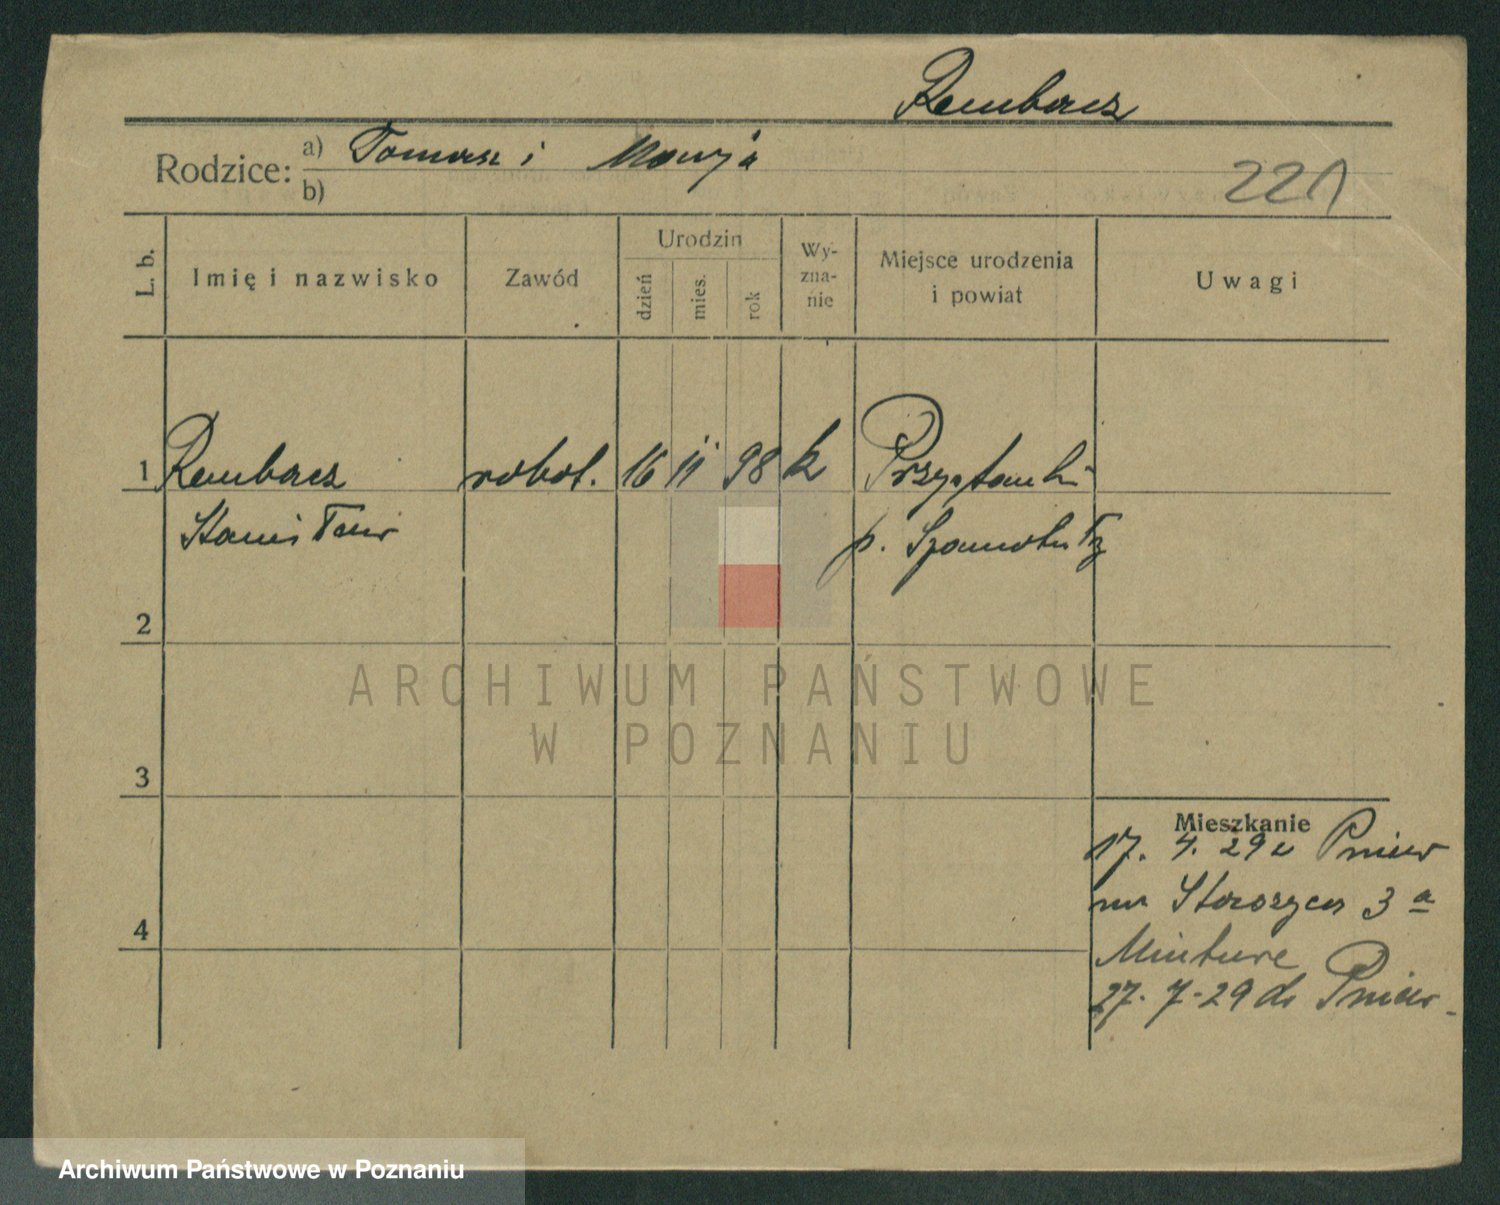 Rembacz
Rodzice: a) Tomasz i Marja
b)
221
L. b.
Imię i nazwisko
Zawód
Urodzin
dzień
mies.
rok
Wy-
zna-
nie
Miejsce urodzenia
i powiat
Uwagi
1 Rembacz robot. 16 11 98 k Przystanki
Stanisław p. Szamotuły
2
3
4
Mieszkanie
17. 4. 29 z Pniew
3 a
27. 7-29 do Pniew.
ARCHIWUM PAŃSTWOWE
W POZNANIU
Archiwum Państwowe w Poznaniu